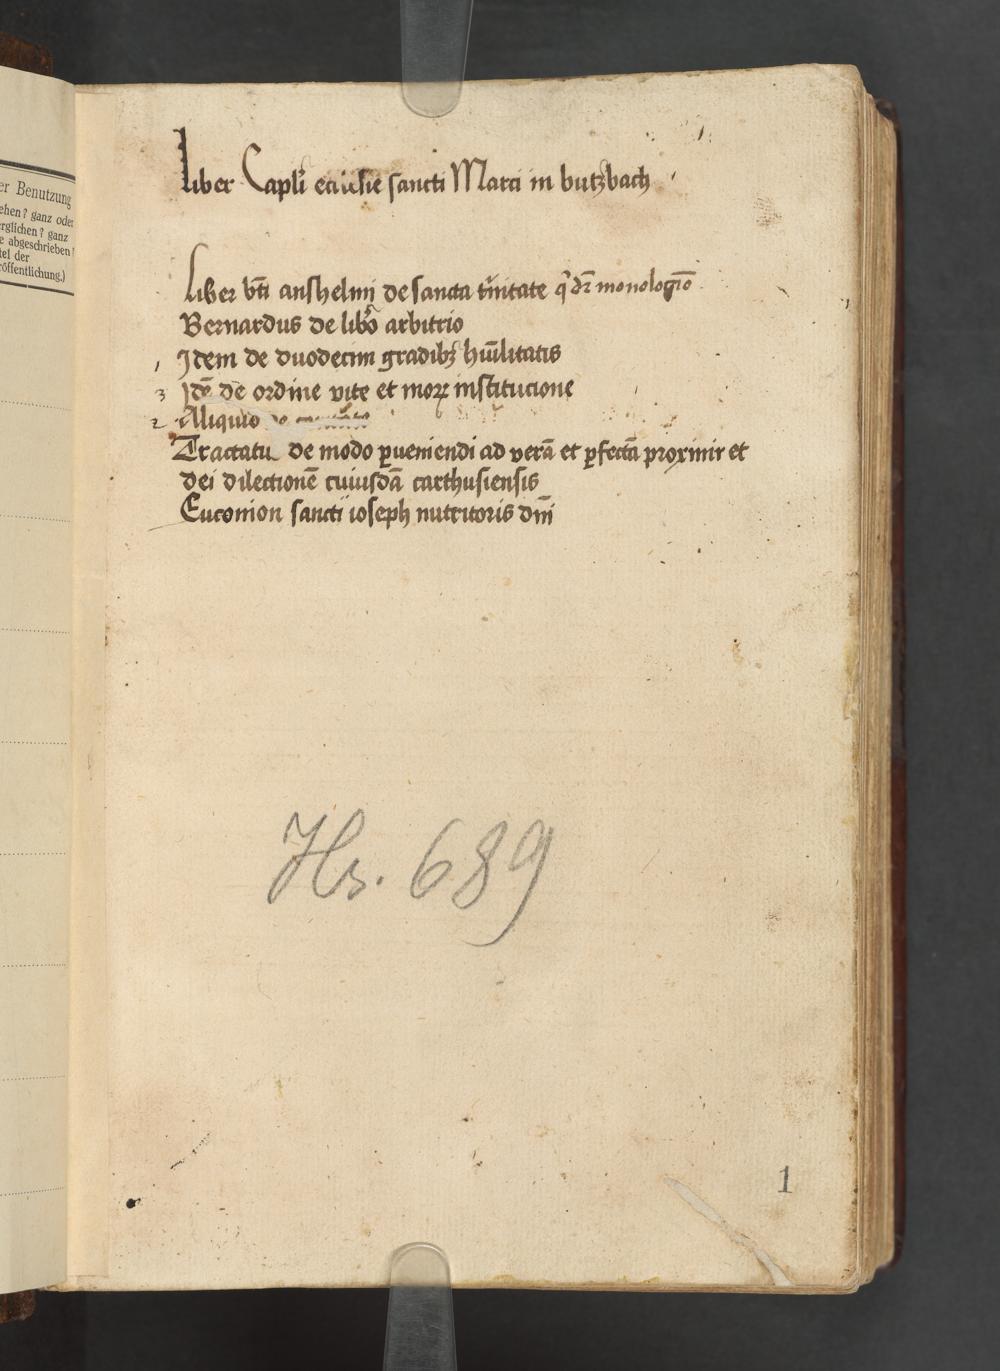 er Benutzung
ehen? ganz oder
erglichen? ganz
e abgeschrieben?
tel der
röffentlichung.)
Liber Capli ecclesie sancti Marci in butzbach
Liber bti anshelmi de sancta trinitate q dr monologio
Bernardus de libo arbitrio
1 Idem de duodecim gradibꝫ hūilitatis
3 Idē de ordine vite et moꝝ institucione
2 Aliquid de
Tractatu de modo ꝑueniendi ad verā et ꝑfectā proximi et
dei dilectionē cuiusdā carthusiensis
Euconion sancti ioseph nutritoris dn̄i
Hs. 689
1